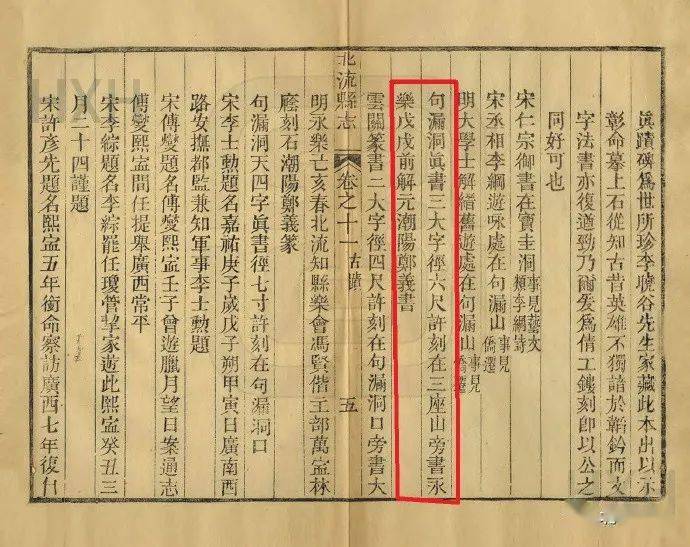 眞蹟碑爲世所珍李曉谷先生家藏此本出以示
彰命摹上石從知古昔英雄不獨諳於韜鈐而文
字法書亦復遒勁乃爾爰爲倩工鐫刻卽以公之
同好可也
宋仁宗御書在寶圭洞事見藝文類李綱詩
宋丞相李綱遊咏處在句漏山事見僑遷
明大學士解縉舊遊處在句漏山事見僑遷
句漏洞眞書三大字徑六尺許刻在三座山旁書永
樂戊戌前解元潮陽鄭義書
北流縣志 卷之十一 古蹟 五
雲關篆書二大字徑四尺許刻在句漏洞口旁書大
明永樂亥春北流知縣樂會馮賢偕部萬寍林
廕刻石潮陽鄭義篆
句漏洞天四字眞書徑七寸許刻在句漏洞口
宋李士勲題名嘉祐庚子歲戊子朔甲寅日廣南西
路安撫都監兼知軍事李士勲題
宋傅燮題名傅燮熙寍壬子曾遊臘月望日案通志
傅燮熙寍間任提舉廣西常平
宋李綜題名李綜罷任瓊管挈家遊此熙寍癸丑三
月二十四謹題
宋許彥先題名熙寍五年銜命察訪廣西七年復